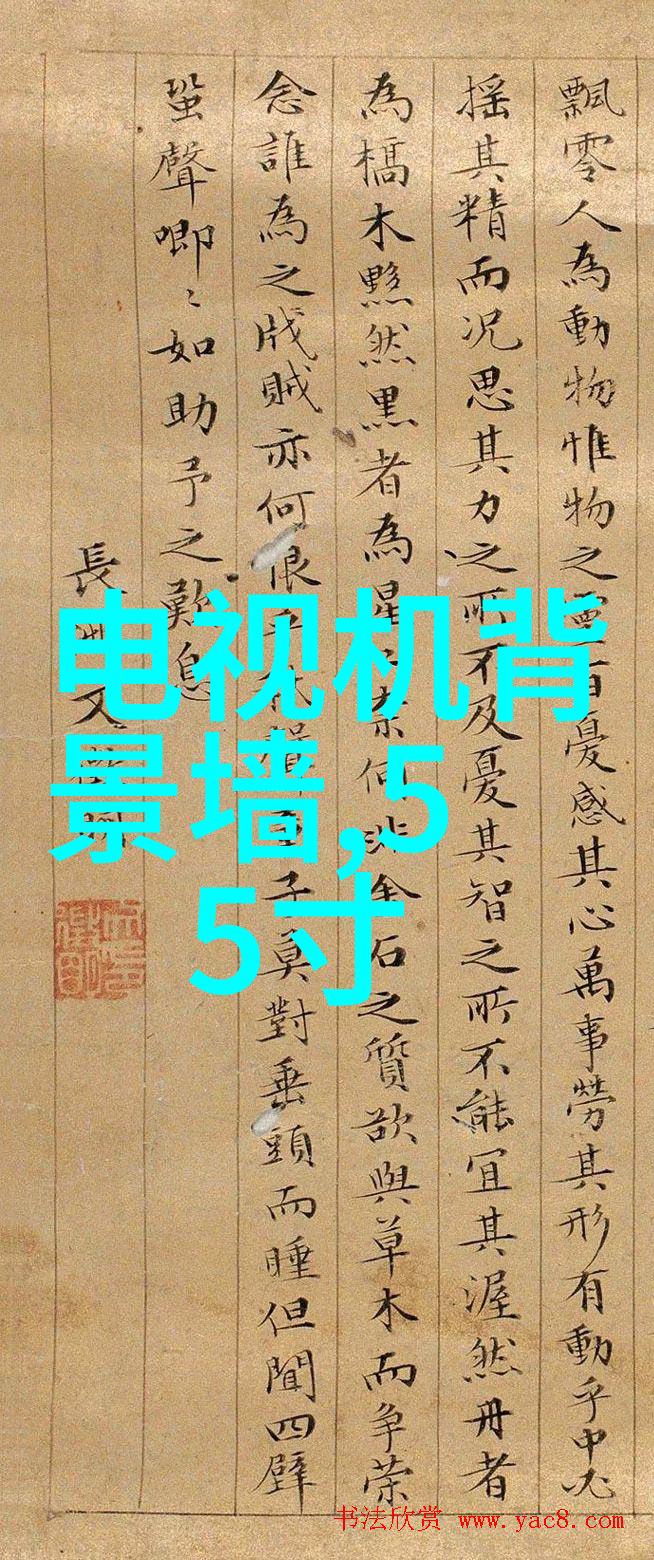 飄零人為動物惟物之靈百憂感其心萬事勞其形有動乎中必
摇其精而况思其力之所不及憂其智之所不能宜其渥然丹者
為槁木黟然黒者為星奈何非金石之質欲與草木而争荣
念誰為之戕賊亦何恨乎聲童子莫對垂頭而睡但聞四壁
蛩聲唧〻如助予之歎息
長洲文
电视机背
景墙,5
5寸
书法欣赏 www.yac8.com